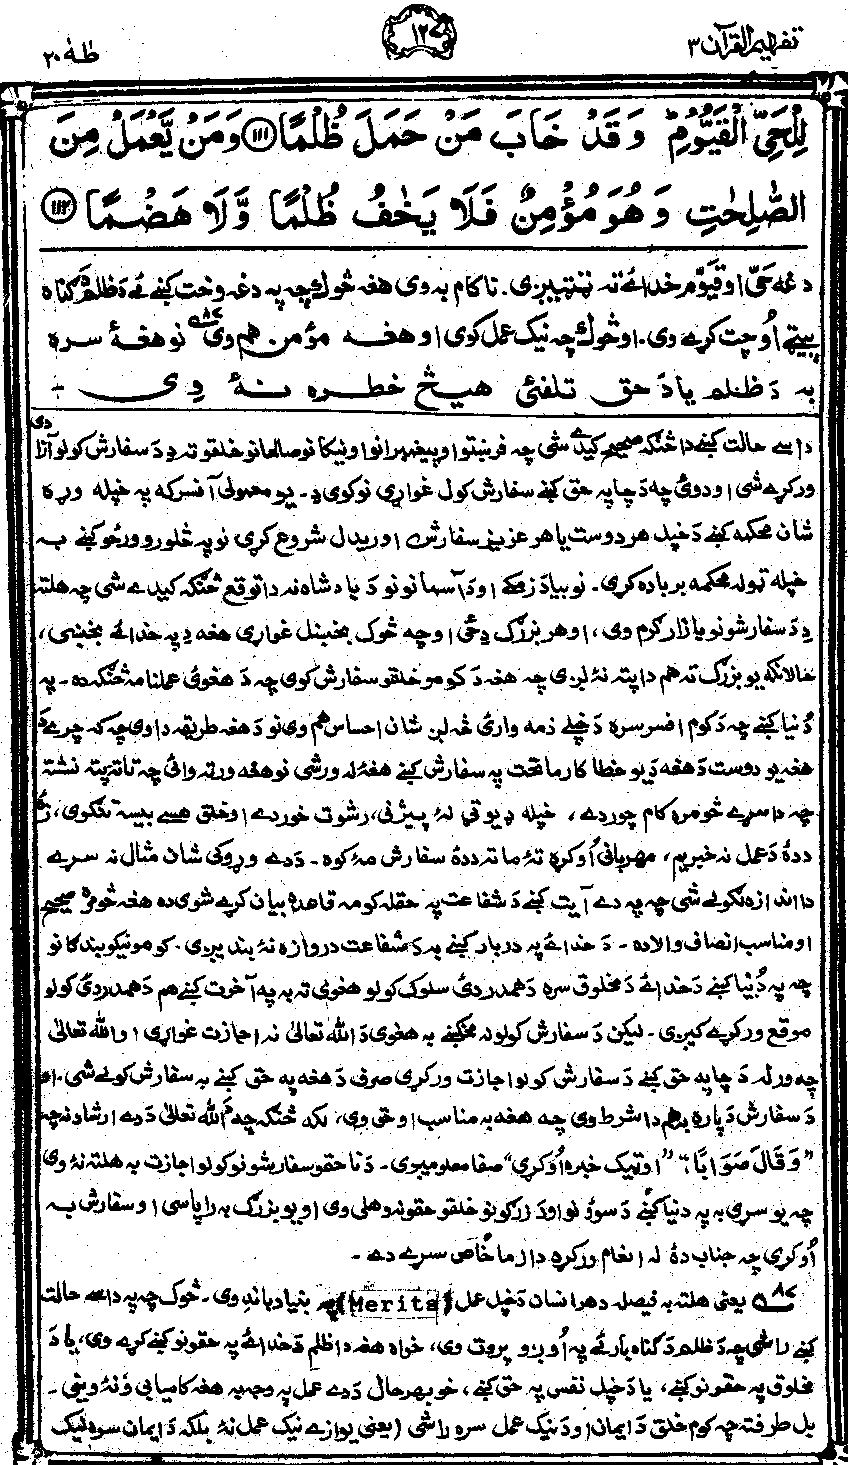 تفهیم القرآن ۳
۱۲۷
طٰهٰ ۲۰
لِلْحَيِّ الْقَيُّوْمِ ؕ وَ قَدْ خَابَ مَنْ حَمَلَ ظُلْمًا ﴿۱۱۱﴾ وَ مَنْ يَّعْمَلْ مِنَ
الصّٰلِحٰتِ وَ هُوَ مُؤْمِنٌ فَلَا يَخٰفُ ظُلْمًا وَّ لَا هَضْمًا ﴿۱۱۲﴾
دغه حَیّ او قَیّوم خدائے ته ټیټیږی. ناکام به وی هغه څوک چه په دغه وخت کښے ئے دَ ظلم ګناه
پیټے اُوچت کړے وی. او څوک چه نیک عمل کوی او هغه مؤمن هم وی ۸۷ نو هغۀ سره
به دَ ظلم یا دَ حق تلفئ هیڅ خطره نۀ وی ÷
داسے حالت کښے دا څنګه صحیح کیدے شی چه فرښتو او پیغمبرانو او نیکانو صالحانو خلقو ته دِ دَ سفارش کولو آزادی
ورکړے شی او دوئ چه دَ چا په حق کښے سفارش کول غواړی نو کوی دِ. یو معمولی آفسر که په خپله وړه
شان محکمه کښے دَ خپل هر دوست یا هر عزیز سفارش اوریدل شروع کړی نو په څلورو ورځو کښے به
خپله ټوله محکمه برباده کړی. نو بیا دَ زمکے او دَ آسمانونو دَ بادشاه نه دا توقع څنګه کیدے شی چه هلته
دِ دَ سفارشونو بازار ګرم وی، او هر بزرګ دِ ځی او چه څوک بخښل غواړی هغه دِ په خدائے بخښی،
حالانکه یو بزرګ ته هم دا پته نۀ لږی چه هغه دَ کومو خلقو سفارش کوی چه دَ هغوئ عملنامه څنګه ده. په
دُنیا کښے چه دَ کوم افسر سره دَ خپلے ذمه وارئ څه لږ شان احساس هم وی نو دَ هغه طریقه دا وی چه که چرے دَ
هغه یو دوست دَ هغه دَ یو خطاکار ماتحت په سفارش کښے هغۀ له ورشی نو هغه ورته وائی چه تا ته پته نشته
چه دا سړے څومره کام چور دے، خپله ډیوټی نۀ پیژنی، رشوت خور دے او خلق هسے بیسه تنګوی، زۀ
ددۀ دَ عمل نه خبر یم، مهربانی اُوکړه تۀ ما ته ددۀ سفارش مه کوه. دَ دے وړوکی شان مثال نه سړے
دا اندازه لګولے شی چه په دے آیت کښے دَ شفاعت په حقله کومه قاعده بیان کړے شوی ده هغه څومره صحیح
او مناسب انصاف والا ده. دَ خدائے په دربار کښے به دَ شفاعت دروازه نۀ بندیږی. کومو نیکو بندګانو
چه په دُنیا کښے دَ خدائے دَ مخلوق سره دَ همدردئ سلوک کولو هغوئ ته به په آخرت کښے هم دَ همدردئ کولو
موقع ورکړے کیږی. لیکن دَ سفارش کولو نه مخکښے به هغوی دَ الله تعالیٰ نه اجازت غواړی، او الله تعالیٰ
چه ورله دَ چا په حق کښے دَ سفارش کولو اجازت ورکړی صرف دَ هغه په حق کښے به سفارش کولے شی. او
دَ سفارش دَ پاره به هم دا شرط وی چه هغه به مناسب او حق وی، لکه څنګه چه دَ الله تعالیٰ دَ دے ارشاد نه چه
"وَ قَالَ صَوَابًا"، "او ټیک خبره اُوکړی" صفا معلومیږی. دَ ناحقو سفارشونو کولو اجازت به هلته نۀ وی
چه یو سړی به په دنیا کښے دَ سوؤنو او دَ زرګونو خلقو حقونه وهلی وی او یو بزرګ به را پاسی او سفارش به
اُوکړی چه جناب دۀ له انعام ورکړه دا زما خاص سړے دے.
۸۷ یعنی هلته به فیصله د هر انسان دَ خپل عمل (Merits) په بنیاد باندِ وی. څوک چه په داسے حالت
کښے راشی چه دَ ظلم دَ ګناه بار ئے په اُوږو پروت وی، خواه هغه دا ظلم دَ خدائے په حقونو کښے کړے وی، یا دَ
مخلوق په حقونو کښے، یا دَ خپل نفس په حق کښے، خو بهر حال دَ دے عمل په وجه به هغه کامیابی ؤ نۀ وینی.
بل طرفته چه کوم خلق دَ ایمان او دَ نیک عمل سره راشی (یعنی یوازے نیک عمل نۀ بلکه دَ ایمان سره نیک